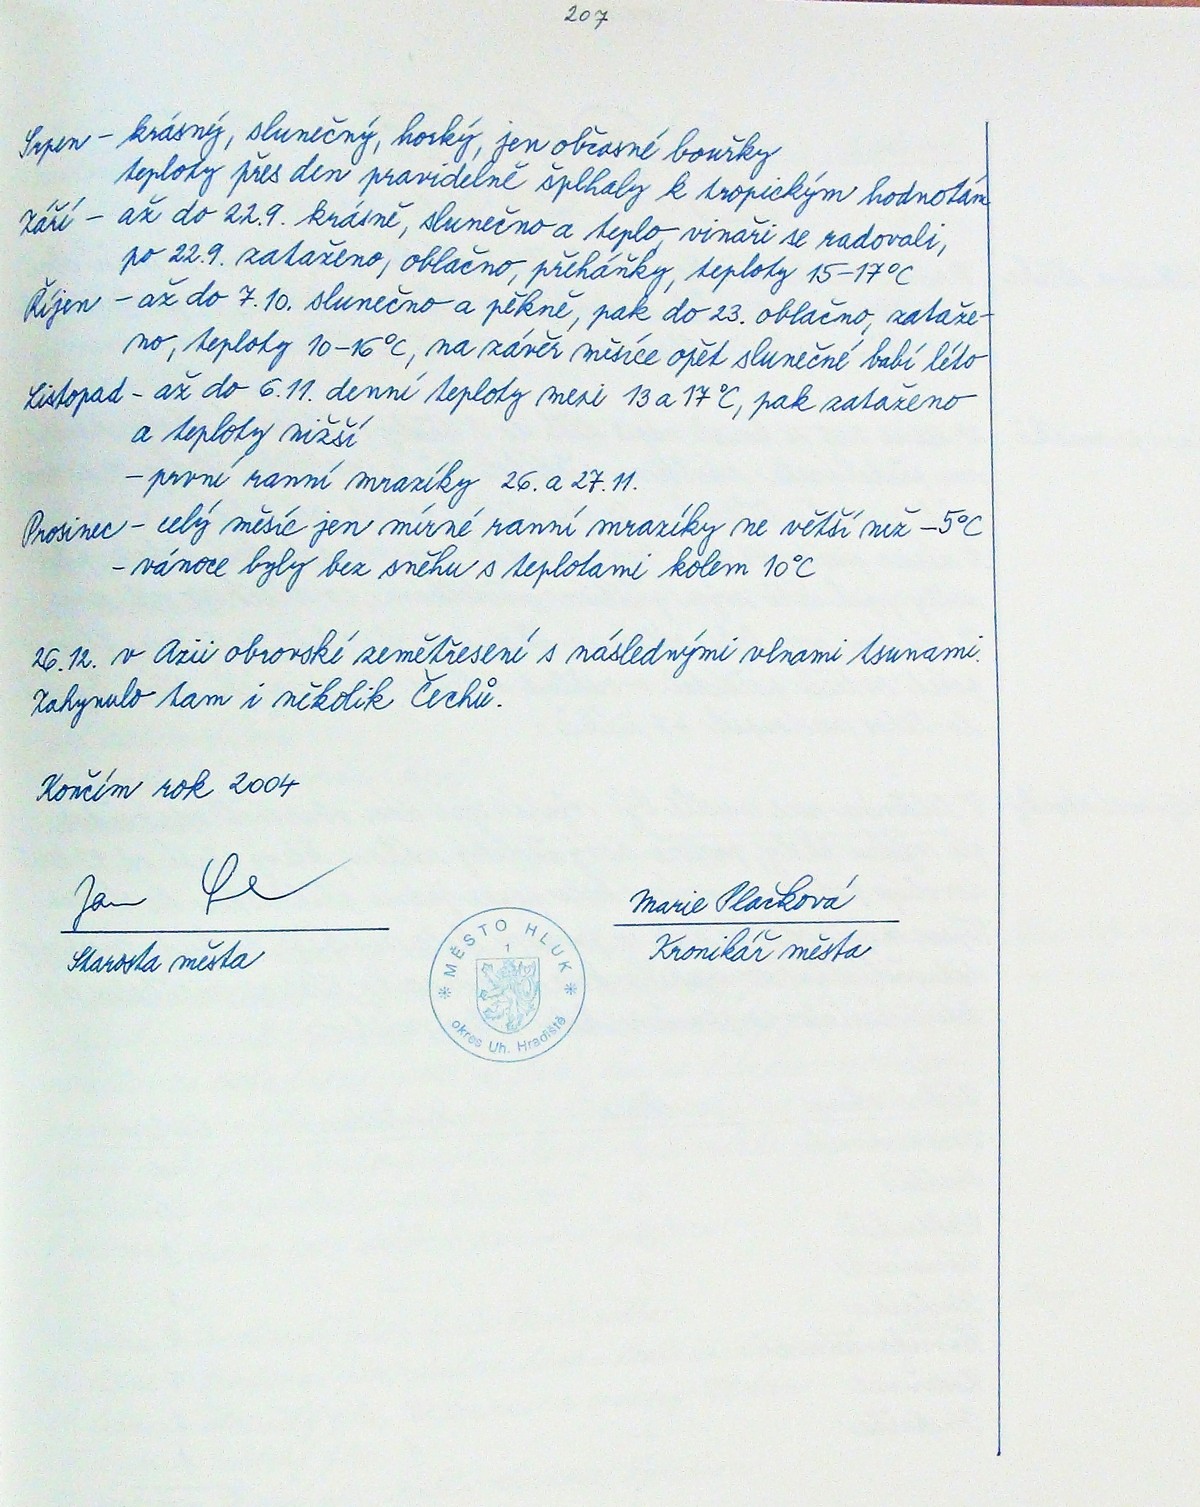 207
Srpen - krásný, slunečný, horký, jen občasné bouřky
teploty přes den pravidelně šplhaly k tropickým hodnotám
Září - až do 22.9. krásně, slunečno a teplo, vinaři se radovali,
po 22.9. zataženo, oblačno, přeháňky, teploty 15-17°C
Říjen - až do 7.10. slunečno a pěkně, pak do 23. oblačno, zataže-
no, teploty 10-16°C, na závěr měsíce opět slunečné babí léto
Listopad - až do 6.11. denní teploty mezi 13 a 17°C, pak zataženo
a teploty nižší
- první ranní mrazíky 26. a 27.11.
Prosinec - celý měsíc jen mírné ranní mrazíky ne větší než -5°C
- vánoce byly bez sněhu s teplotami kolem 10°C
26.12. v Azii obrovské zemětřesení s následnými vlnami tsunami.
Zahynulo tam i několik Čechů.
Končím rok 2004
Jan
Marie Plačková
Starosta města
Kronikář města
* MĚSTO HLUK *
1
okres Uh. Hradiště